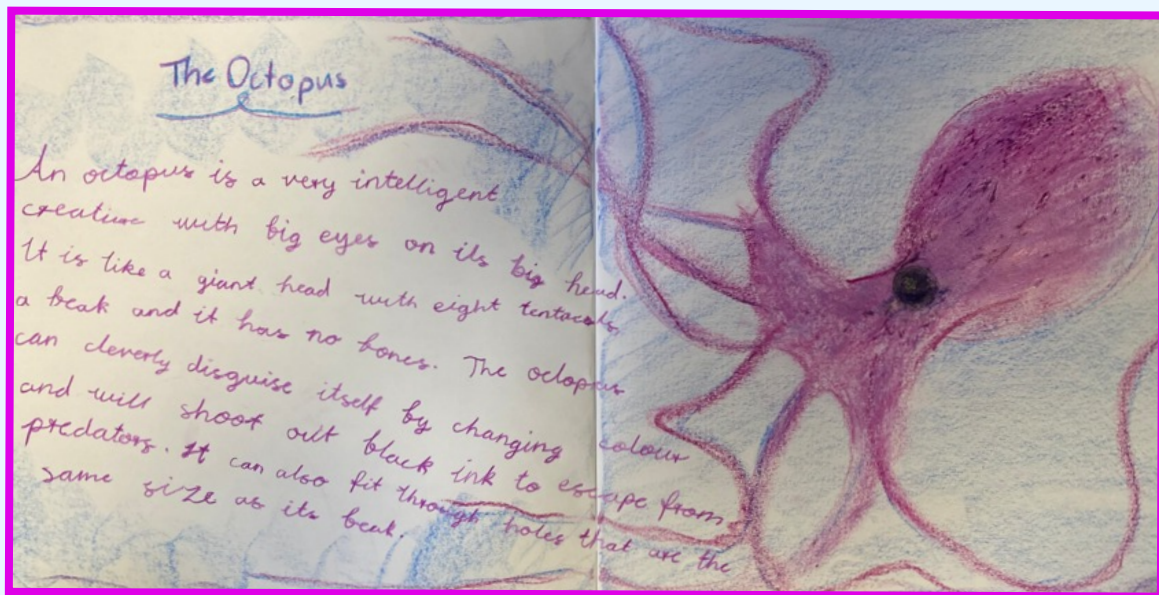 The Octopus
An octopus is a very intelligent
creature with big eyes on its big head.
It is like a giant head with eight tentacals,
a beak and it has no bones. The octopus
can cleverly disguise itself by changing colour
and will shoot out black ink to escape from
predators. It can also fit through holes that are the
same size as its beak.